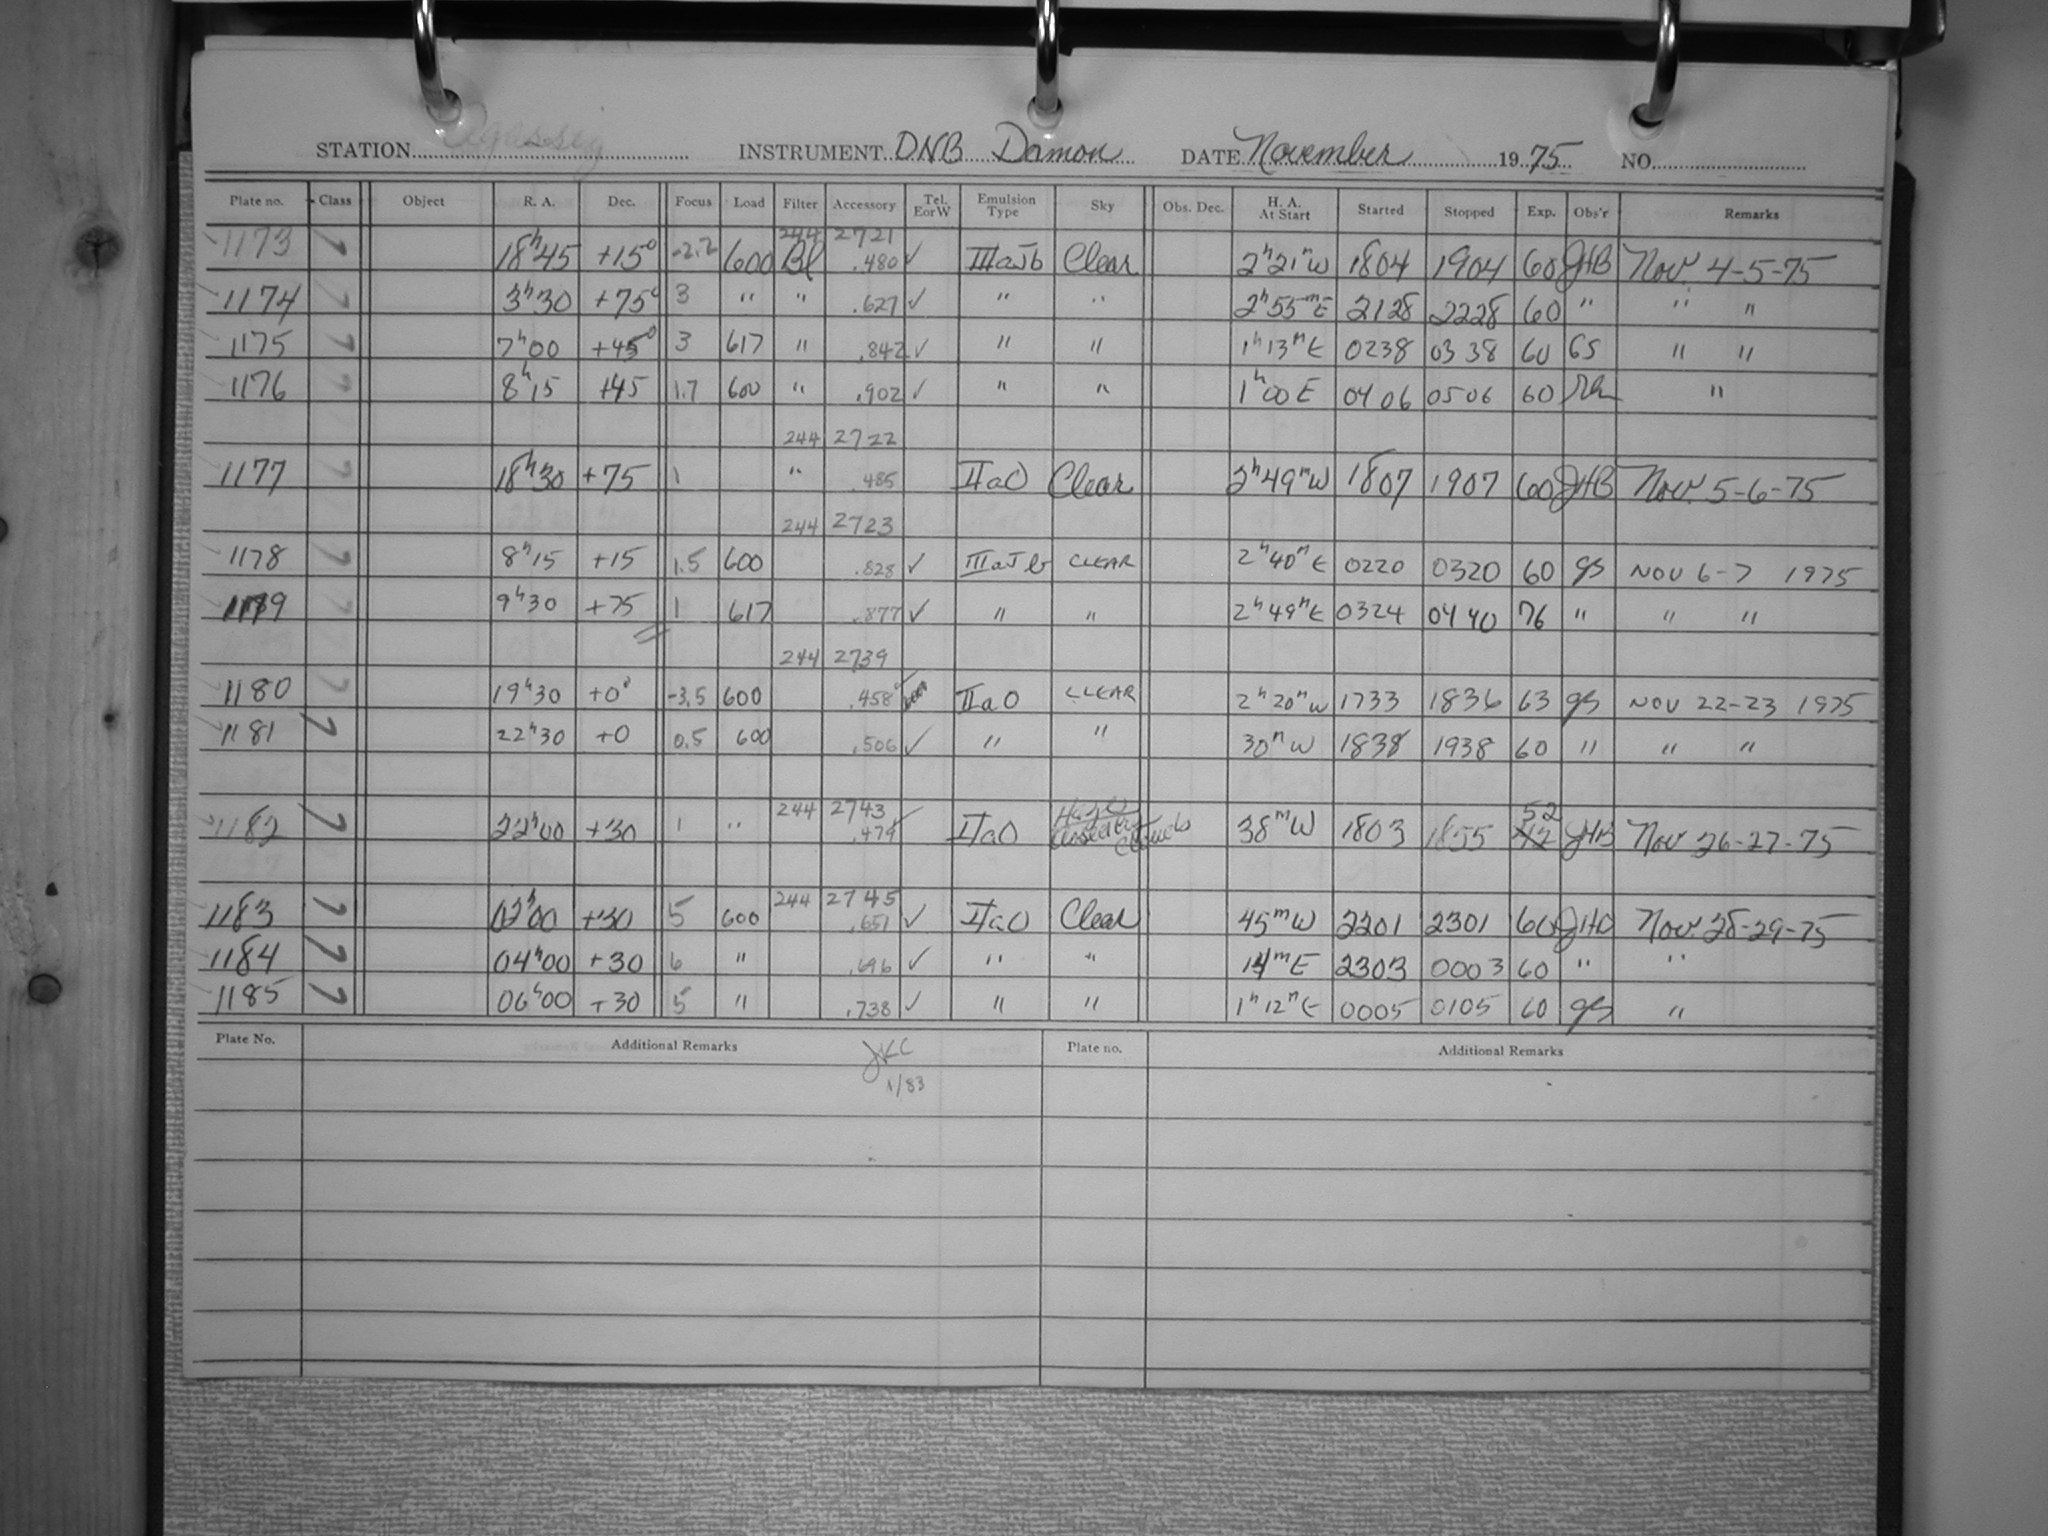 STATION Agassiz INSTRUMENT DNB Damon DATE November 1975 NO.
Plate no. Class Object R. A. Dec. Focus Load Filter Accessory Tel. E or W Emulsion Type Sky Obs. Dec. H. A. At Start Started Stopped Exp. Obs'r Remarks
244 2721
1173 7 18h45 +15° -2.2 600 Bl .480 ✓ IIIaJb Clear 2h21m W 1804 1904 60 JHB Nov. 4-5-75
1174 7 3h30 +75° 3 " " .627 ✓ " " 2h55m E 2128 2228 60 " " "
1175 7 7h00 +45° 3 617 " .842 ✓ " " 1h13m E 0238 0338 60 GS " "
1176 7 8h15 +45 1.7 600 " .902 ✓ " " 1h00 E 0406 0506 60 "
244 2722
1177 7 18h30 +75 1 " .485 IIaO Clear 2h49m W 1807 1907 60 JHB Nov. 5-6-75
244 2723
1178 7 8h15 +15 1.5 600 .828 ✓ IIIaJb CLEAR 2h40m E 0220 0320 60 gs NOV 6-7 1975
1179 7 9h30 +75 1 617 .877 ✓ " " 2h49m E 0324 0440 76 " " "
244 2739
1180 7 19h30 +0° -3.5 600 .458 ✓ IIaO CLEAR 2h20m W 1733 1836 63 gs NOV 22-23 1975
1181 7 22h30 +0 0.5 600 .506 ✓ " " 30m W 1838 1938 60 " " "
244 2743 52
1182 7 22h00 +30 1 " .474 ✓ IIaO Clouds 38m W 1803 1855 42 JHB Nov 26-27-75
244 2745
1183 7 02h00 +30 5 600 .651 ✓ IIaO Clear 45m W 2201 2301 60 JHB Nov. 28-29-75
1184 7 04h00 +30 6 " .696 ✓ " " 14m E 2303 0003 60 " "
1185 7 06h00 +30 5 " .738 ✓ " " 1h12m E 0005 0105 60 gs "
Plate No. Additional Remarks Plate no. Additional Remarks
JKC
1/83